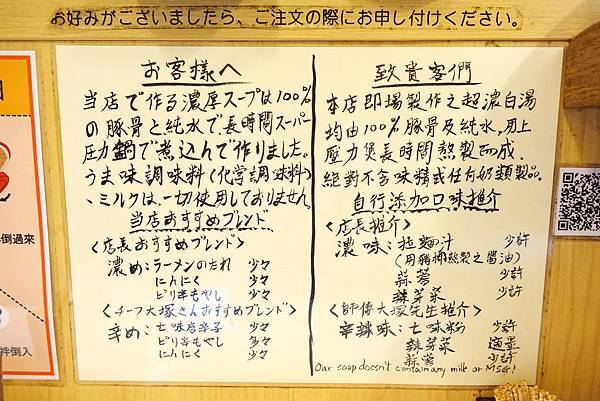 お好みがございましたら、ご注文の際にお申し付けください。
お客様へ
当店で作る濃厚スープは100%
の豚骨と純水で、長時間スーパー
圧力鍋で煮込んで作りました。
うま味調味料(化学調味料)
、ミルクは、一切使用しておりません。
当店おすすめブレンド
<店長おすすめブレンド>
濃め:ラーメンのたれ 少々
にんにく 少々
ピリ辛もやし 少々
<チーフ大塚さんおすすめブレンド>
辛め:七味唐辛子 少々
ピリ辛もやし 多々
にんにく 少々
致貴客們
本店即場製作之超濃白湯
均由100%豚骨及純水,用上
壓力煲長時間熬製而成,
絕對不含味精或任何奶類製品。
自行添加口味推介
<店長推介>
濃味:拉麵汁 少許
蒜蓉 少許
辣芽菜 少許
<師傅大塚先生推介>
辛辣味:七味粉 少許
辣芽菜 適量
蒜蓉 少許
Our soup doesn't contain any milk or MSG!
倒過來
拌倒入